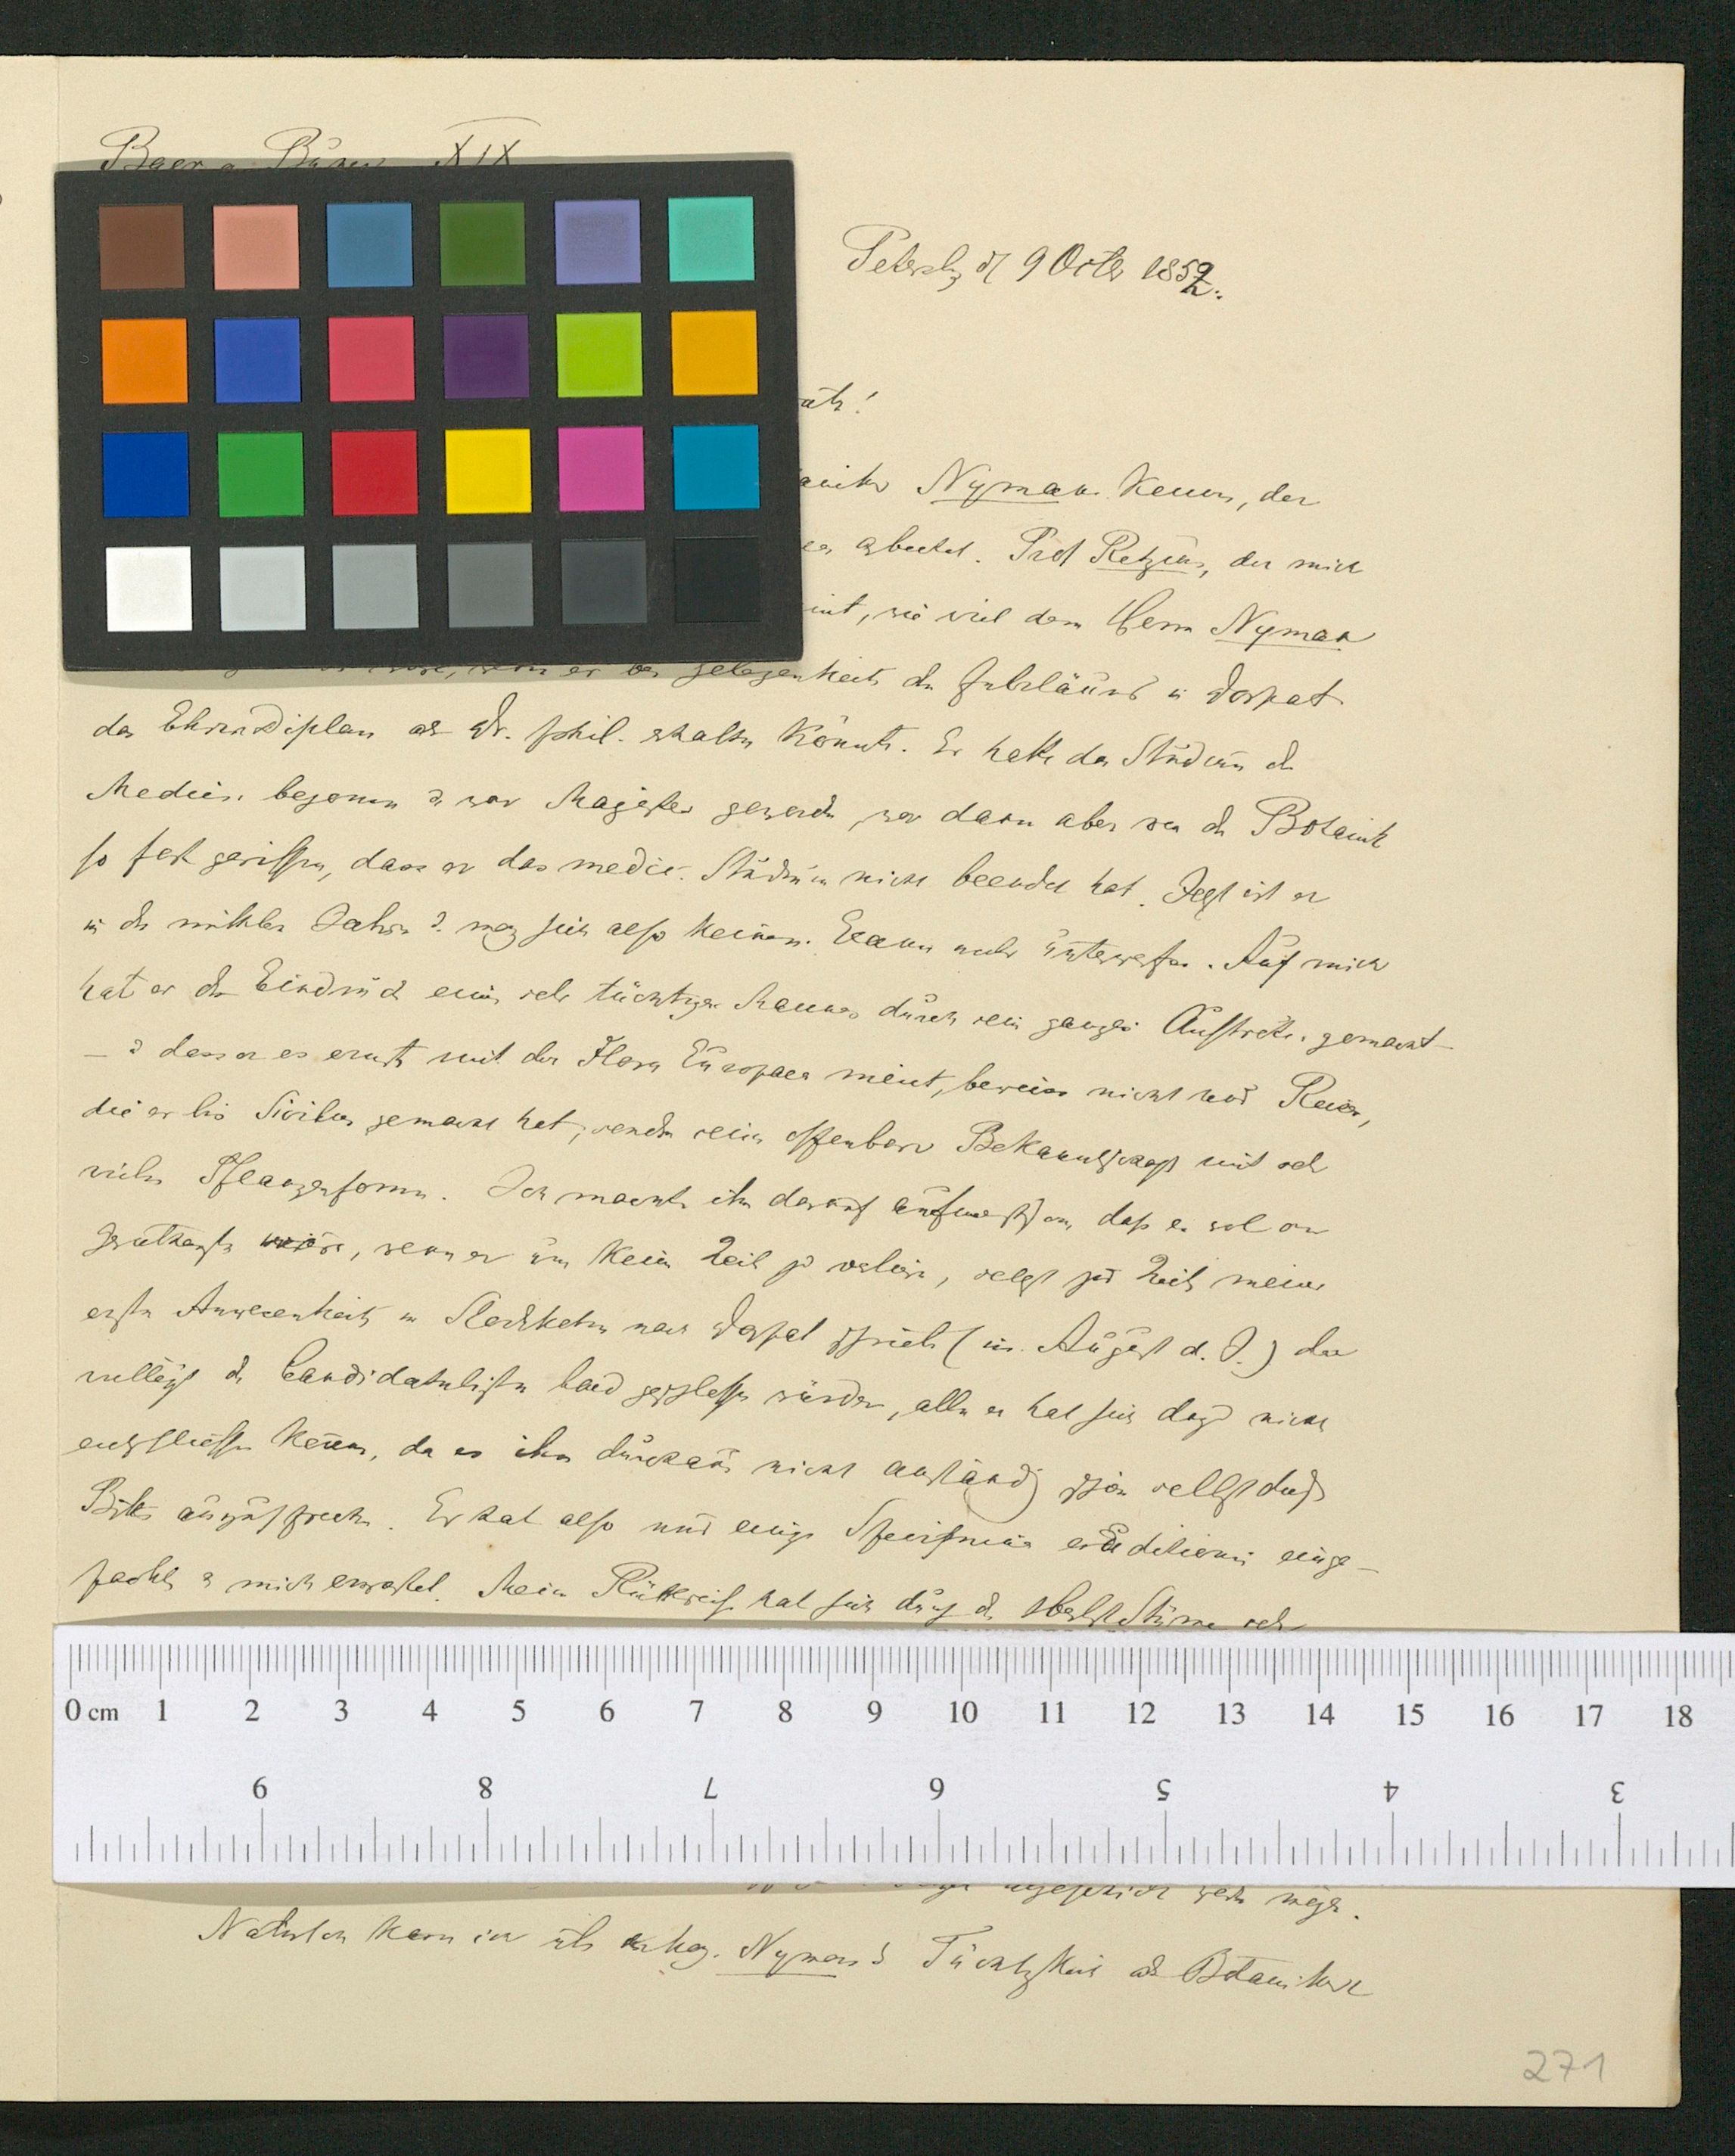 Baer a Bunge XIX
Petersbg d 9 Octbr 1852.
ath!
Nyman kenn, der
arbeitet. Prof Retzius, der mich
int, wie viel dem Herrn Nyman
wäre, wenn er bei Gelegenheit des Jubiläums in Dorpat
das Ehrendiplom als Dr. phil. erhalten könnte. Er hatte das Studium der
Medicin begonnen & war Magister geworden, war dann aber von der Botanik
so fort gerissen, dass er das medic. Studium nicht beendet hat. Jetzt ist er
in den mittlern Jahren & mag sich also keinem Examen mehr unterwerfen. Auf mich
hat er den Eindruck eines sehr tüchtigen Mannes durch sein ganzes Auftreten gemacht
– & dass er es ernst mit der Flora Europaea meint, beweisen nicht nur Reisen,
die er bis Sicilien gemacht hat, sondern seine offenbare Bekanntschaft mit sehr
vielen Pflanzenformen. Ich machte ihn darauf aufmerksam, dass es wol am
wäre, wenn er um keine Zeit zu verlieren, selbst zur Zeit meiner
ersten Anwesenheit in Stockholm nach Dorpat schriebe (im August d. J.) da
vielleicht die Candidatenlisten bald geschlossen würden, allein er hat sich dazu nicht
entschliessen können, da es ihm durchaus nicht anständig schien selbst diese
Bitte auszusprechen. Er hat also nur einige Specimina eruditionis einge-
packt & mich erwartet. Meine Rückreise hat sich durch die Herbst Stürme sehr
werden mögen.
Natürlich kann ich über Mag. Nyman's Tüchtigkeit als Botaniker
271
0 cm 1 2 3 4 5 6 7 8 9 10 11 12 13 14 15 16 17 18
9 8 7 6 5 4 3